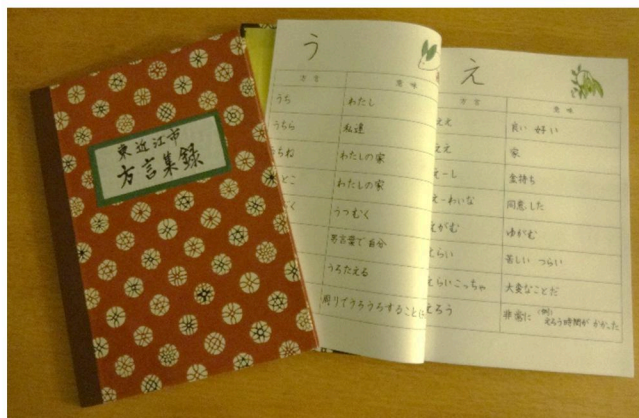 東近江市
方言集録
う
方言 意味
うち わたし
うちら 私達
ちね わたしの家
とこ わたしの家
く うつむく
若言葉で自分
うちたえる
周りでうちうちすること
え
方言 意味
ええ 良い 好い
ええ 家
えーし 金持ち
えーわいな 同意した
えがむ ゆがむ
えらい 苦しい つらい
えらいこっちゃ 大変なことだ
えろう 非常に (例)えろう時間がかかった